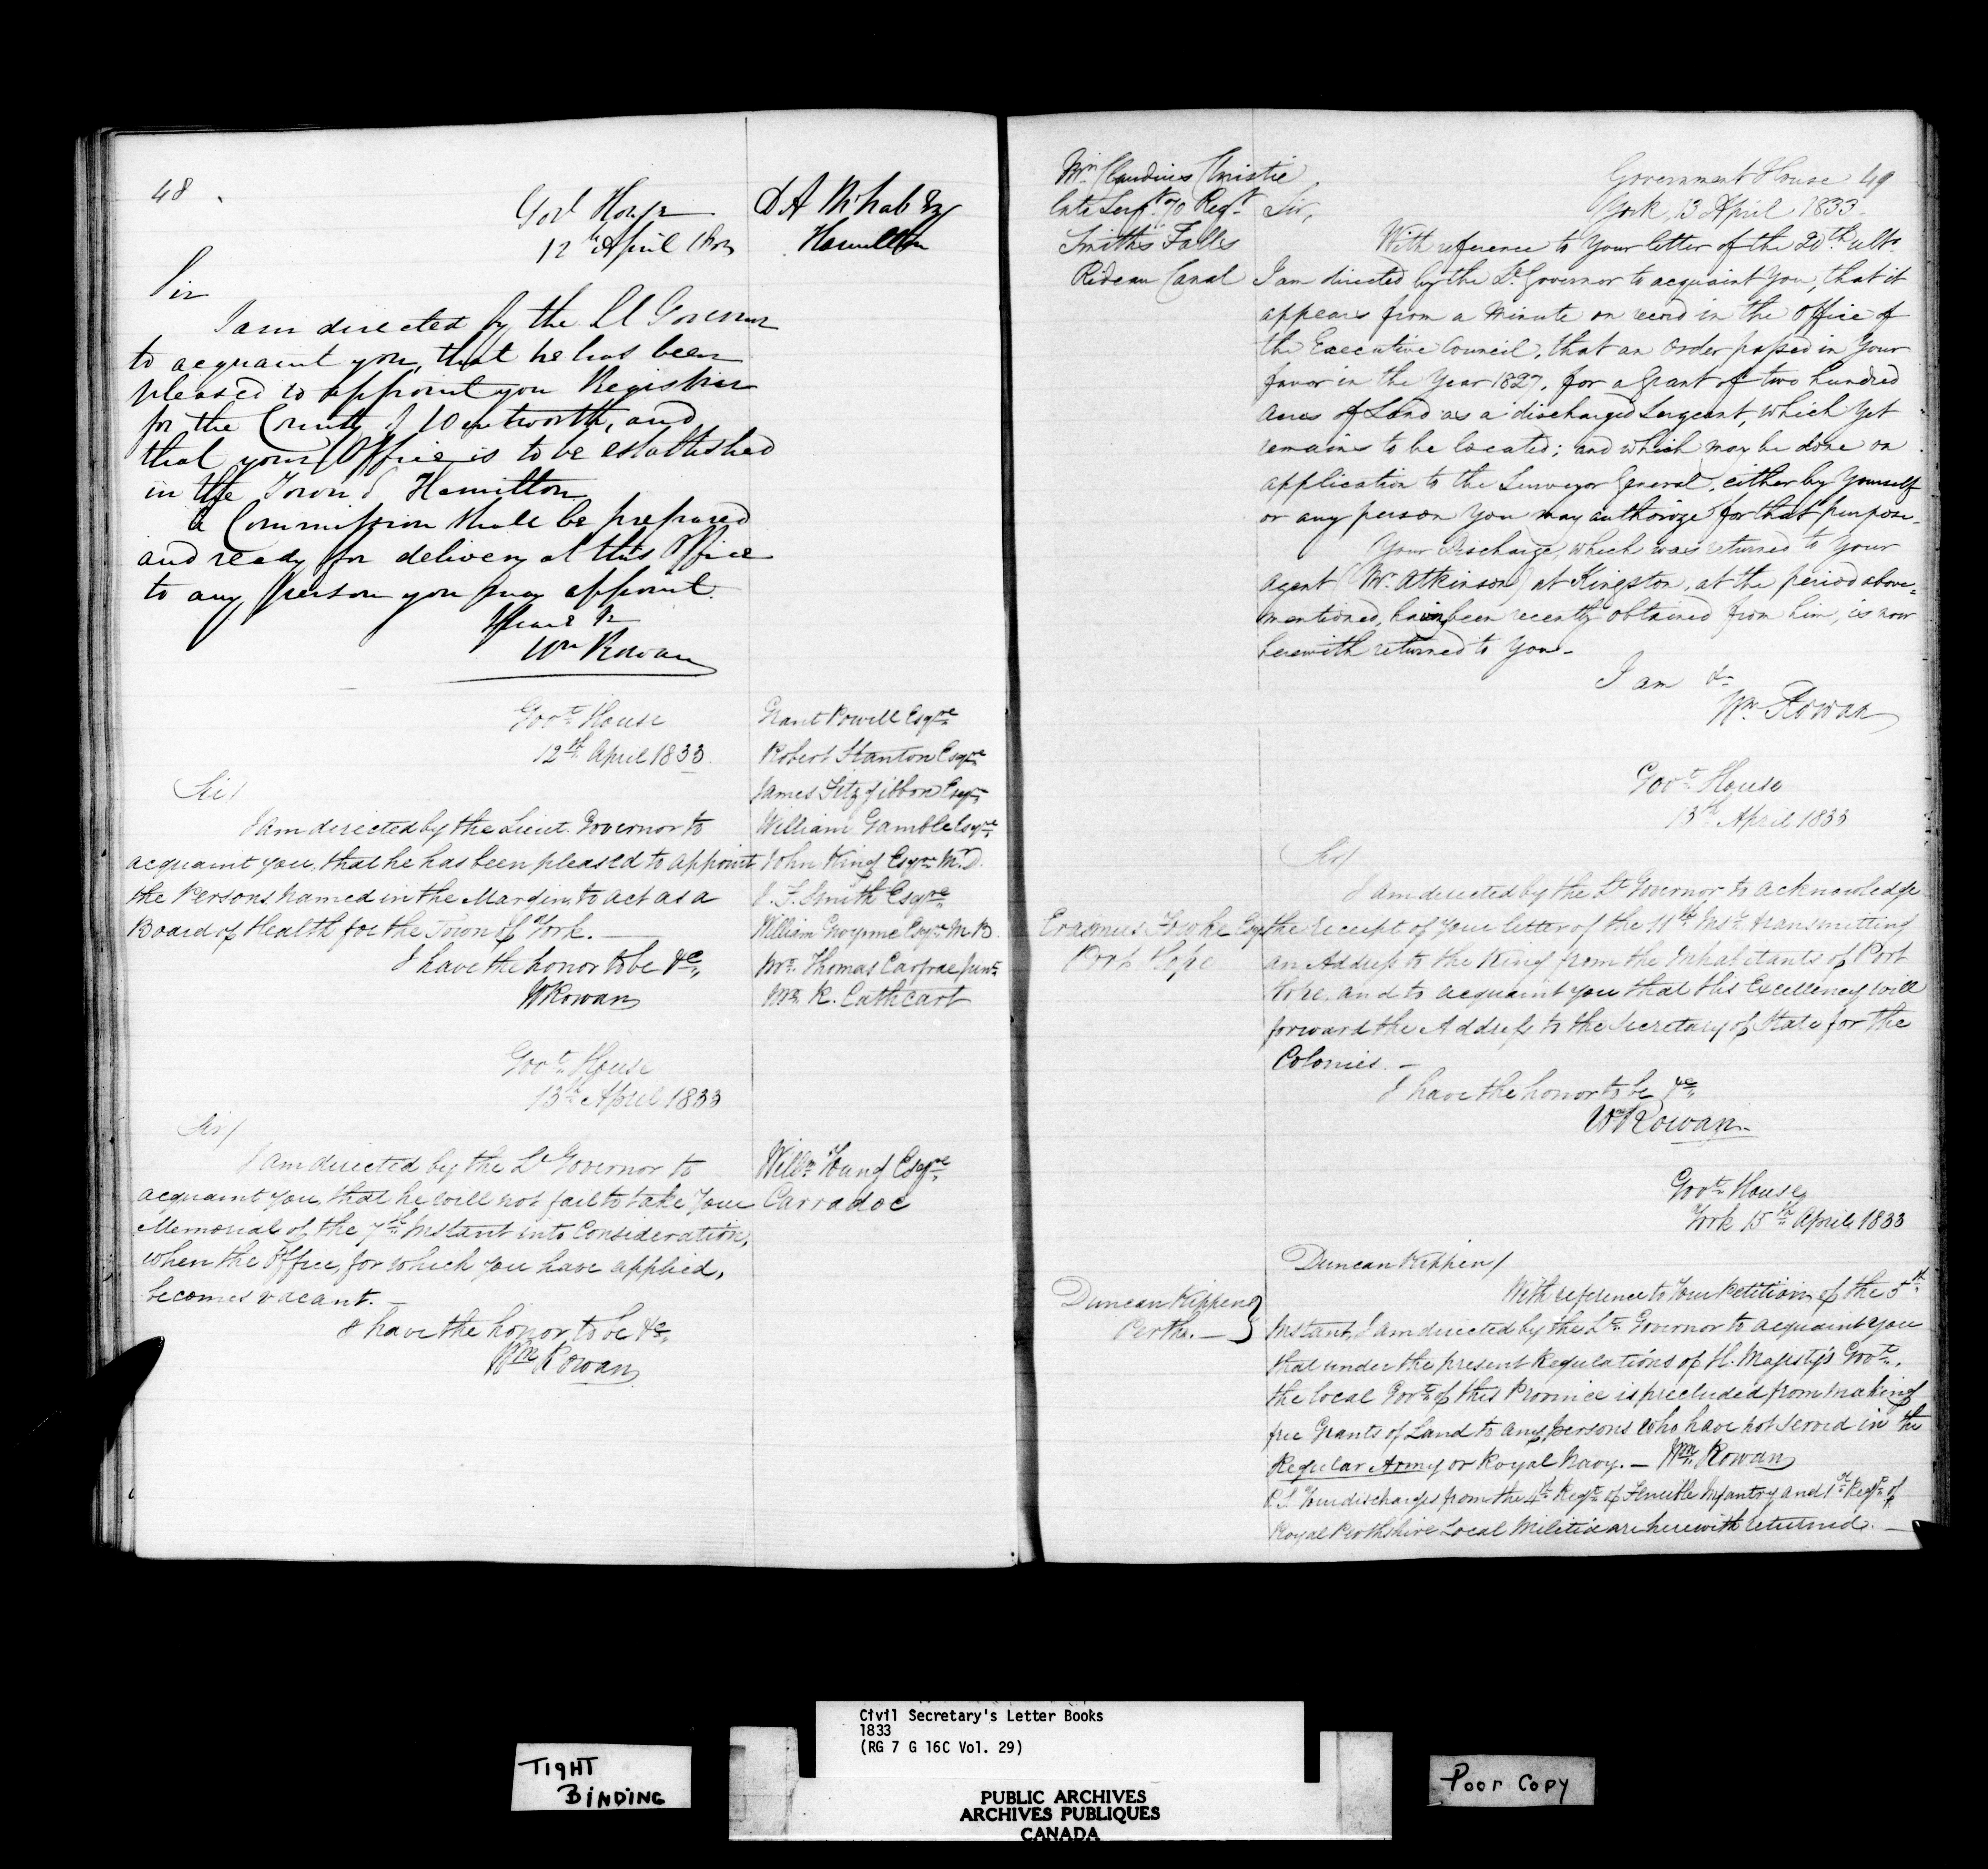 48
Govt House
12th April 1833
D A McNab Esq
Hamilton
Sir
I am directed by the Lt Governor
to acquaint you, that he has been
pleased to appoint you Registrar
for the County of Wentworth, and
that your Office is to be established
in the Town of Hamilton
A Commission shall be prepared
and ready for delivery at this Office
to any person you may appoint.
I have &c
Wm Rowan
Govt House
12th April 1833.
Sir/
I am directed by the Lieut. Governor to
acquaint you, that he has been pleased to appoint
the Persons named in the Margin, to act as a
Board of Health for the Town of York. —
I have the honor to be &c
WRowan
Grant Powell Esqre
Robert Stanton Esqre
James Fitzgibbon Esqre
William Gamble Esqre
John King Esqre M.D.
Smith Esqre
William Gwynne Esqre M B.
Mr. Thomas Carfrae Junr
Mr. R. Cathcart
Govt House
13th April 1833
Sir/
I am directed by the Lt Governor to
acquaint you, that he will not fail to take Your
Memorial of the 7th Instant into Consideration,
when the Office, for which you have applied,
becomes vacant. —
I have the honor to be &c
Wm Rowan
Willm Young Esqre
Carradoc
Mr. Claudius Christie
late Sergt 70 Regt
Smiths Falls
Rideau Canal
Government House 49
York, 13 April 1833.
Sir,
With reference to Your letter of the 20th ulto.
I am directed by the Lt Governor to acquaint You, that it
appears from a Minute on record in the Office of
the Executive Council, that an Order passed in Your
favor in the Year 1827, for a Grant of two hundred
Acres of Land as a discharged Sergeant, which Yet
remains to be located; and which may be done on
application to the Surveyor General, either by Yourself
or any person You may authorize for that purpose.
Your Discharge, which was returned to Your
Agent (Mr. Atkinson) at Kingston, at the period above-
mentioned, having been recently obtained from him, is now
herewith returned to You.
I am &c
Wm. Rowan
Govt House
13th April 1833
Sir/
I am directed by the Lt Governor to acknowledge
the receipt of your letter of the 11th Inst. transmitting
an Address to the King from the Inhabitants of Port
Hope, and to acquaint you that His Excellency will
forward the Address to the Secretary of State for the
Colonies. —
I have the honor to be &c
Wm Rowan
Erasmus Fowke Esqr
Port Hope
Govt House
York 15th April 1833
Duncan Kippen/
With reference to Your Petition of the 5th
Instant, I am directed by the Lt. Governor to acquaint you
that under the present Regulations of H. Majesty's Govt.,
the local Govt of this Province is precluded from making
free Grants of Land to any persons who have not served in the
Regular Army or Royal Navy. — Wm Rowan
P.S. Your discharges from the 4th Regt. of Fencible Infantry and 1st Regt of
Royal Perthshire Local Militia are herewith returned. —
Duncan Kippen
Perth. —
TIGHT
BINDING
Civil Secretary's Letter Books
1833
(RG 7 G 16C Vol. 29)
PUBLIC ARCHIVES
ARCHIVES PUBLIQUES
CANADA
Poor Copy